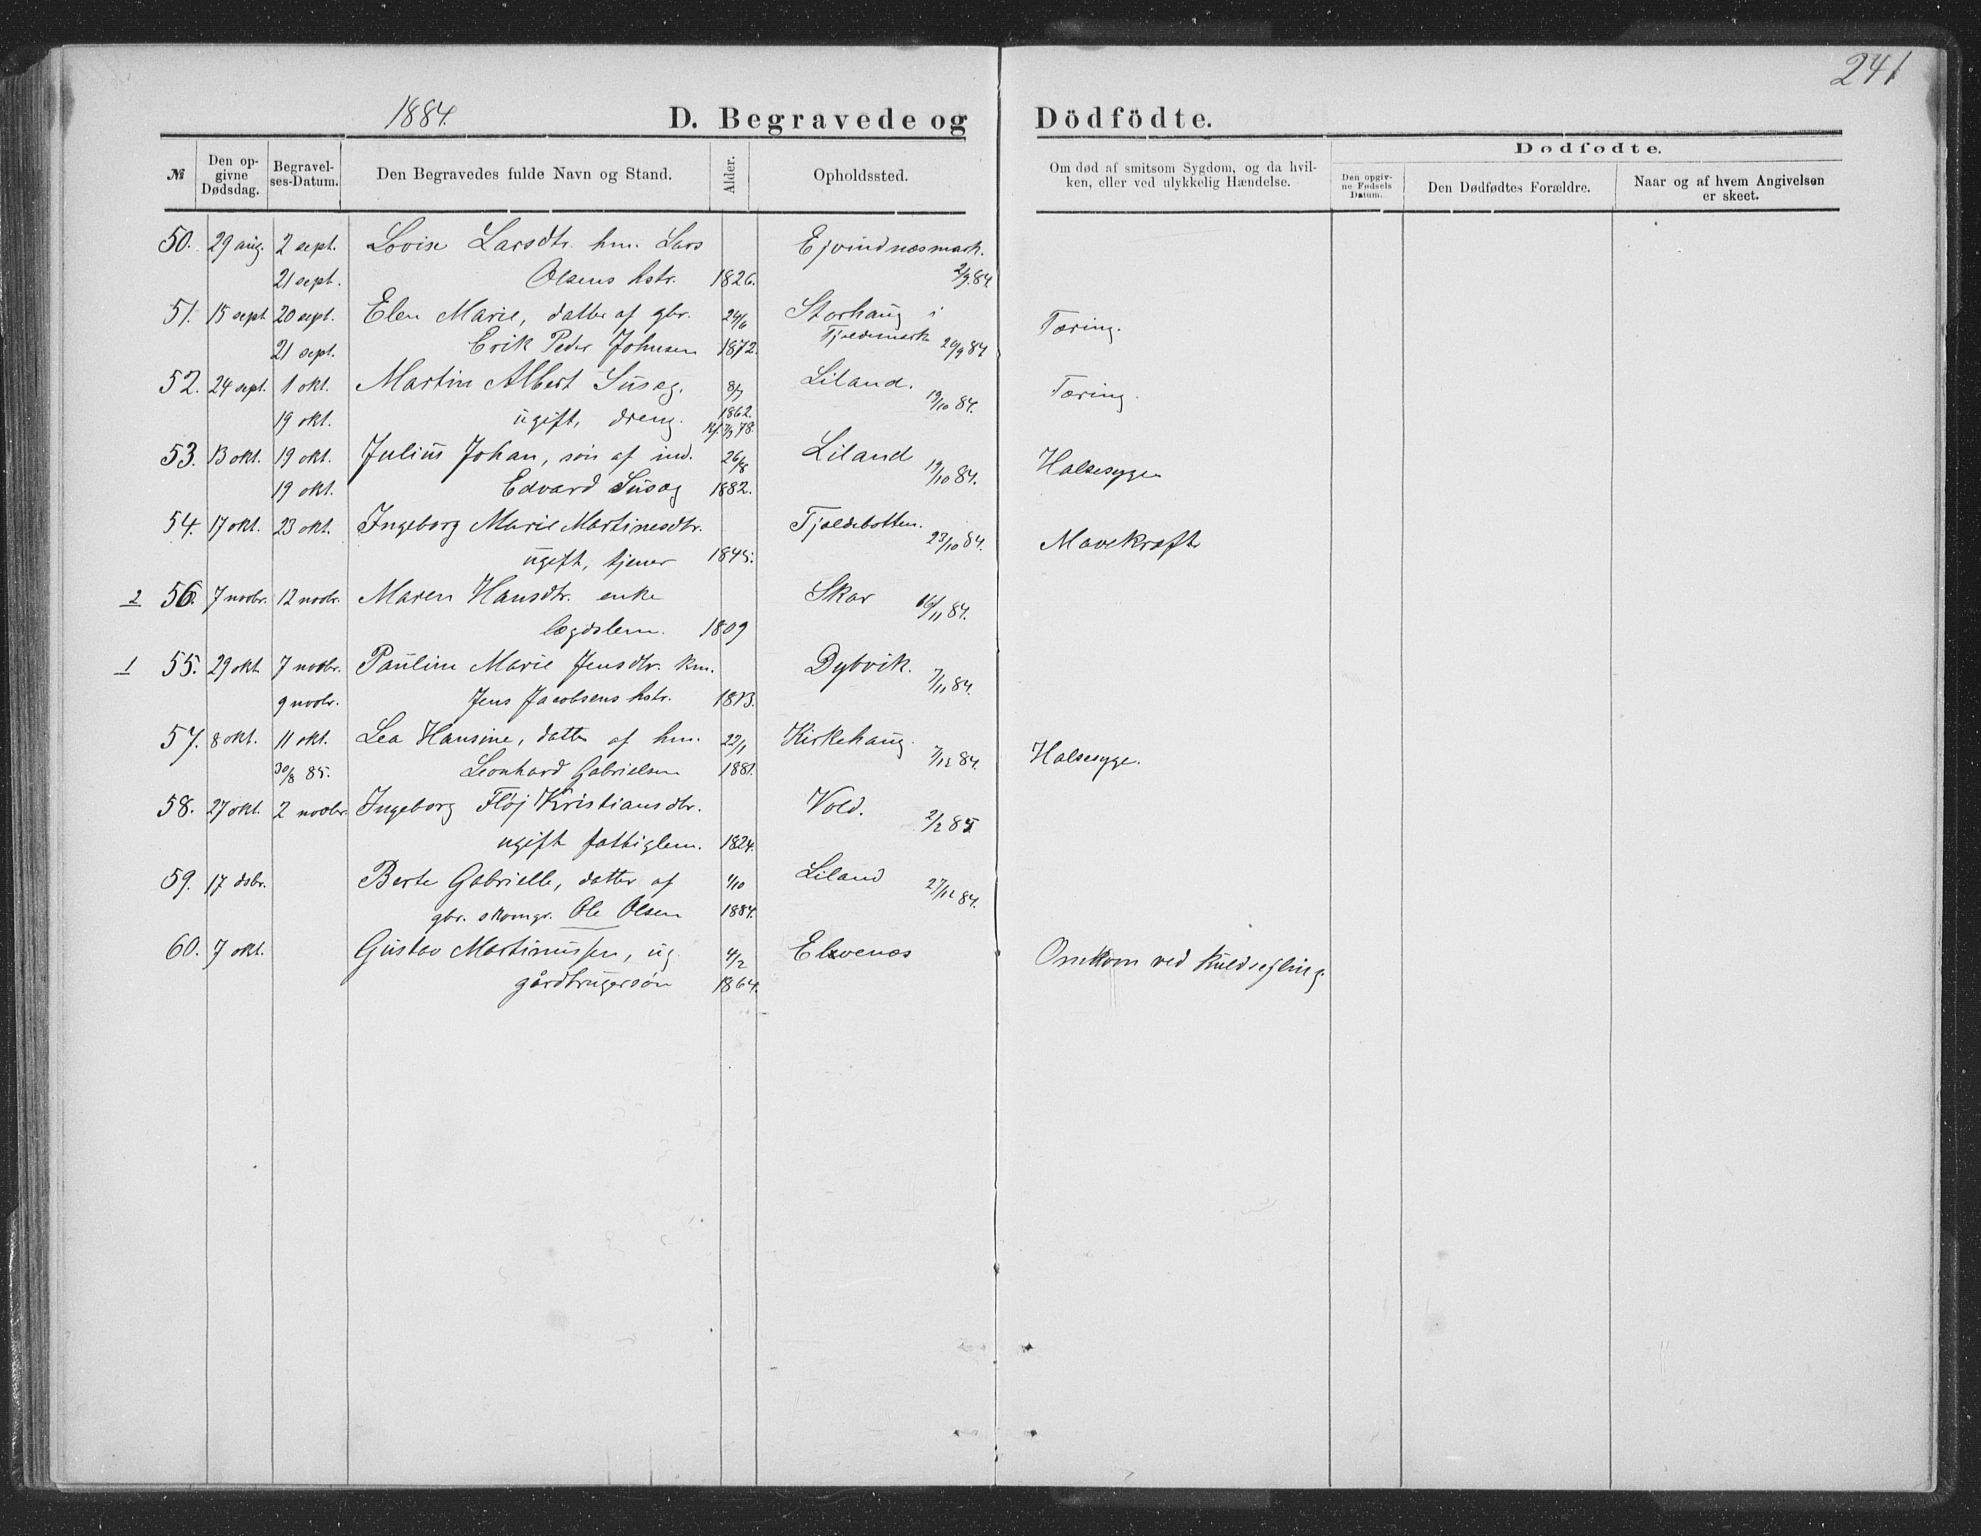 241
1884.
D. Begravede og Dödfödte.
№ | Den opgivne Dødsdag. | Begravelses-Datum. | Den Begravedes fulde Navn og Stand. | Alder. | Opholdssted. | Om død af smitsom Sygdom, og da hvilken, eller ved ulykkelig Hændelse. | Dødfødte. | Den opgivne Fødsels Datum. | Den Dødfødtes Forældre. | Naar og af hvem Angivelsen er skeet.
50. 29 aug. 2 sept. Lovise Larsdtr. hm. Lars Ejvindnæsmark.
21 sept. Olsens hstr. 1826. 2/9 84
51. 15 sept. 20 sept. Elen Marie, datter af gbr. 24/6 Storhaug i Tæring.
21 sept. Erik Peder Johnsen 1872. Tjeldemark 20/9 84
52. 24 sept. 1 okt. Martin Albert Susag, 8/7 Liland. Tæring.
19 okt. ugift, dreng. 1862. 19/10 84.
53. 13 okt. 19 okt. Julius Johan, søn af ind. 26/8 Liland Halsesyge
19 okt. Edvard Susag 1882. 19/10 84.
54. 17 okt. 23 okt. Ingeborg Marie Martinesdtr. Tjeldebotten.
ugift, tjener 1845. 23/10 84. Mavekræft
2 56. 7 novbr. 12 novbr. Maren Hansdtr. enke Skar
lægdslem. 1809 16/11 84.
1 55. 29 okt 7 novbr. Pauline Marie Jensdtr. km. Dybvik.
9 novbr. Jens Jacobsens hstr. 1813. 7/11 84.
57. 8 okt. 11 okt. Lea Hansine, datter af hm. 22/1 Kirkehaug. Halsesyge.
30/8 85. Leonhard Gabrielsen 1881. 7/12 84.
58. 27 okt. 2 novbr. Ingeborg Fløj Kristiansdtr. Vold.
ugift fattiglem. 1824. 2/2 85
59. 17 dsbr. Berte Gabrielle, datter af 4/10 Liland
gbr. skomgr. Ole Olsen 1884. 27/12 84.
60. 7 okt. Gustav Martinussen, ug. 4/2 Elvenæs Omkom ved kuldsejling.
gårdbrugersøn 1864.